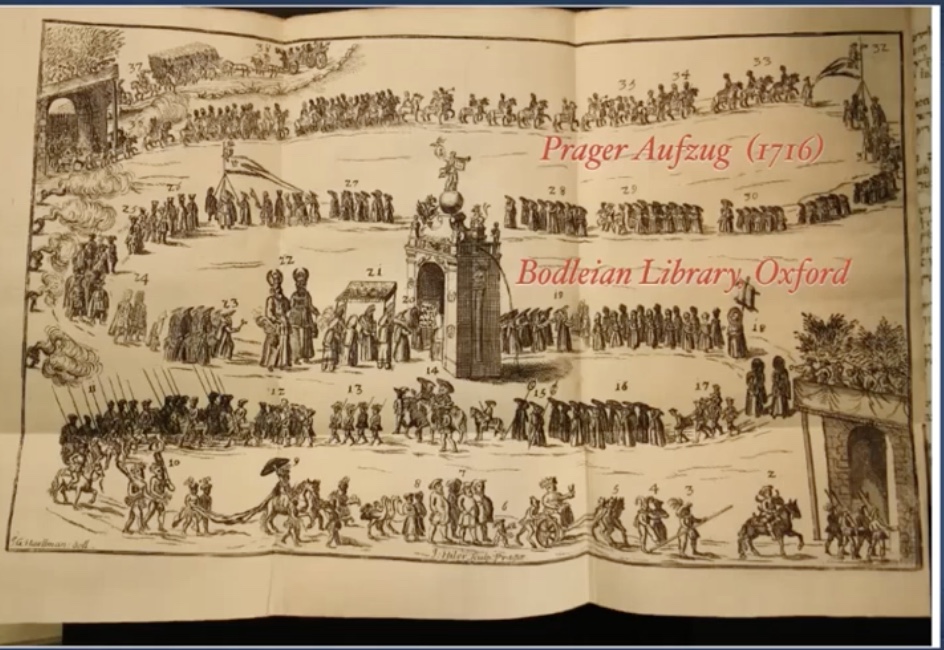 37 38 35 34 33 32
Prager Aufzug (1716)
25 26 27 28 29 30
Bodleian Library, Oxford
24 23 22 21 20 19 18
11 12 13 14 15 16 17
10 9 8 7 6 5 4 3 2